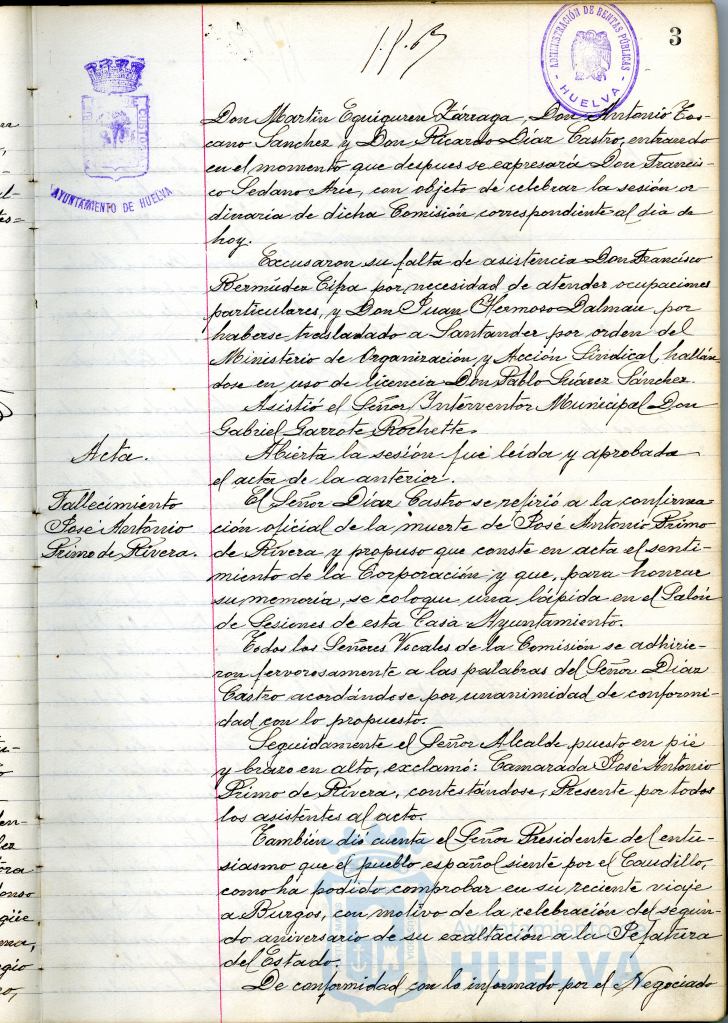 3
ADMINISTRACIÓN DE RENTAS PÚBLICAS
HUELVA
AYUNTAMIENTO DE HUELVA
Don Martín Eguiguren Zárraga, Don Antonio Tos-
cano Sanchez y Don Ricardo Díaz Castro, entrando
en el momento que despues se expresará Don Francis-
co Sedano Arce, con objeto de celebrar la sesión or
dinaria de dicha Comisión correspondiente al dia de
hoy.
Excusaron su falta de asistencia Don Francisco
Bermúdez Cifra por necesidad de atender ocupaciones
particulares, y Don Juan Hermoso Dalmau por
haberse trasladado a Santander por orden del
Ministerio de Organización y Acción Sindical, hallán-
dose en uso de licencia Don Pablo Suárez Sánchez.
Asistió el Señor Interventor Municipal Don
Gabriel Garrote Rochette.
Acta.
Abierta la sesión fué leída y aprobada
el acta de la anterior.
Fallecimiento
José Antonio
Primo de Rivera.
El Señor Díaz Castro se refirió a la confirma-
ción oficial de la muerte de José Antonio Primo
de Rivera y propuso que conste en acta el senti-
miento de la Corporación y que, para honrar
su memoria, se coloque una lápida en el Salón
de Sesiones de esta Casa Ayuntamiento.
Todos los Señores Vocales de la Comisión se adhirie-
ron fervorosamente a las palabras del Señor Díaz
Castro acordándose por unanimidad de conformi-
dad con lo propuesto.
Seguidamente el Señor Alcalde puesto en pié
y brazo en alto, exclamó: Camarada José Antonio
Primo de Rivera, contestándose, Presente por todos
los asistentes al acto.
También dió cuenta el Señor Presidente del entu-
siasmo que el pueblo español siente por el Caudillo,
como ha podido comprobar en su reciente viaje
a Burgos, con motivo de la celebración del segun-
do aniversario de su exaltación a la Jefatura
del Estado.
De conformidad con lo informado por el Negociado
Ayuntamiento de
HUELVA